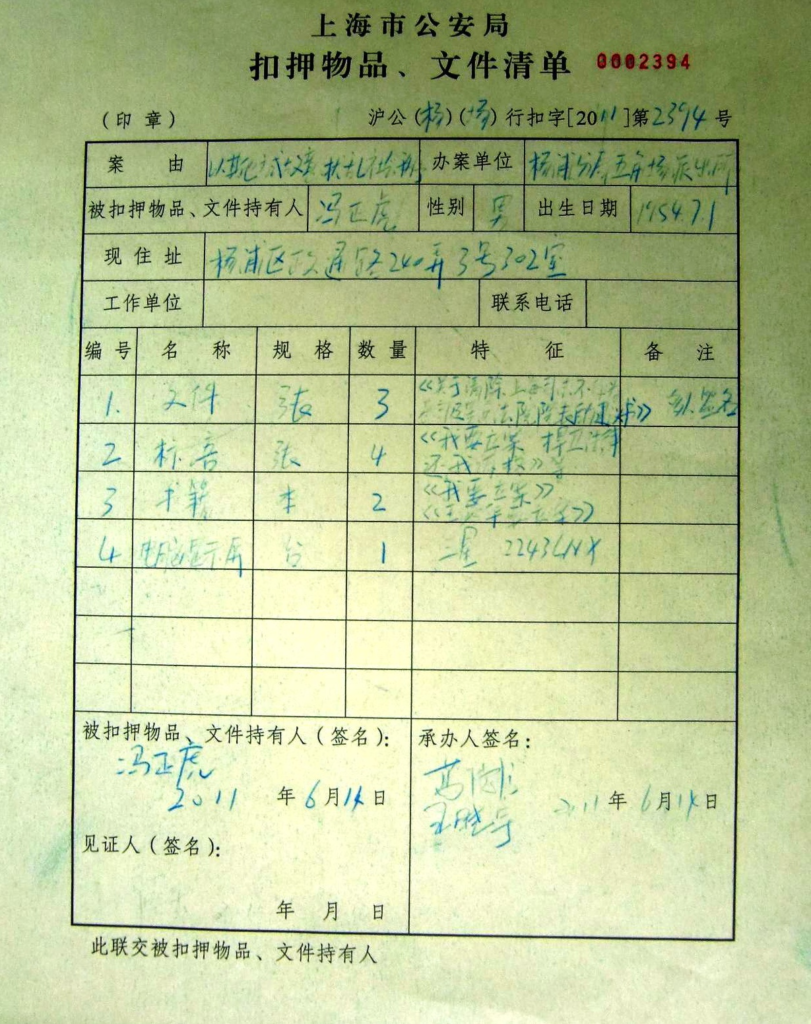 上海市公安局
扣押物品、文件清单 0002394
(印章) 沪公(杨)(场)行扣字[2011]第2394号
案由 扰乱社 办案单位 杨浦分局五角场派出所
被扣押物品、文件持有人 冯正虎 性别 男 出生日期 1954.7.1
现住址 杨浦区政通路240弄3号302室
工作单位 联系电话
编号 名称 规格 数量 特征 备注
1. 文件 张 3 《关于清除上海 法院院 》 签名
2 标语 张 4 《我要立案 捍卫法律
还我 》等
3 书籍 本 2 《我要立案》
《 要立案》
4 电脑显示屏 台 1 三星 2243LNX
被扣押物品、文件持有人(签名):
冯正虎
2011年6月14日
承办人签名:
2011年6月14日
见证人(签名):
年 月 日
此联交被扣押物品、文件持有人